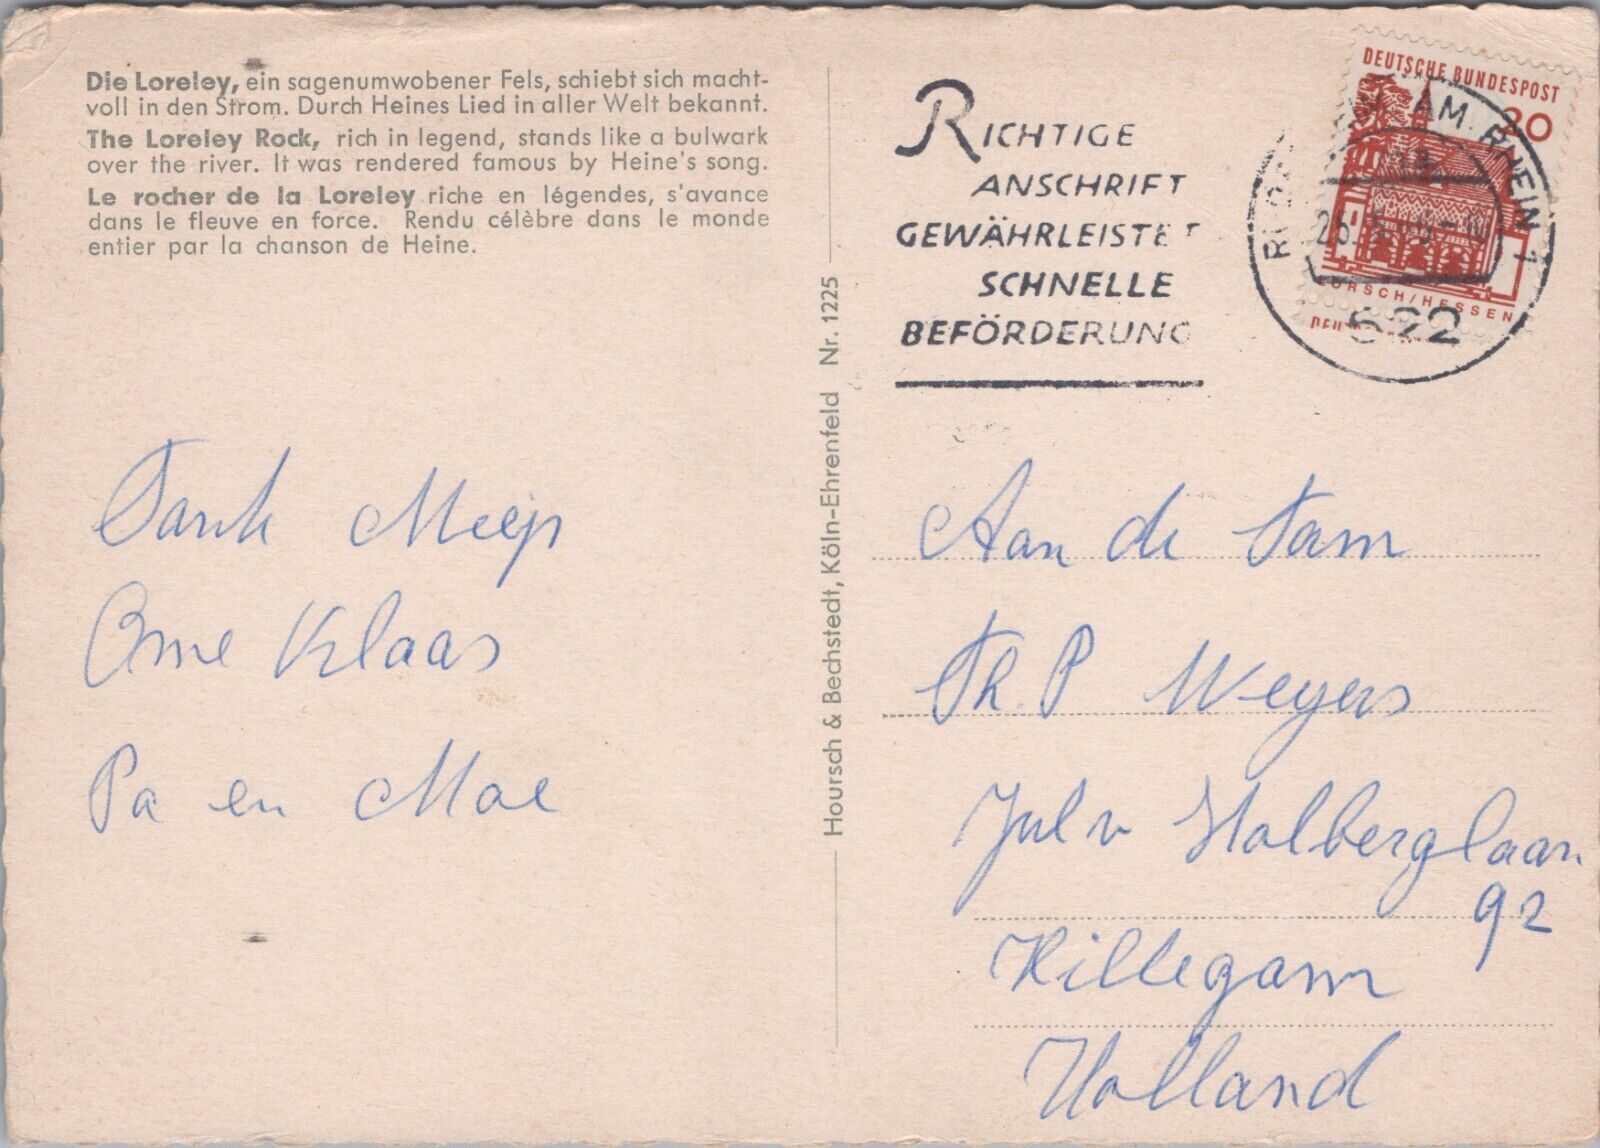 Die Loreley, ein sagenumwobener Fels, schiebt sich macht-
voll in den Strom. Durch Heines Lied in aller Welt bekannt.
The Loreley Rock, rich in legend, stands like a bulwark
over the river. It was rendered famous by Heine's song.
Le rocher de la Loreley riche en légendes, s'avance
dans le fleuve en force. Rendu célèbre dans le monde
entier par la chanson de Heine.
Miep
Ome Klaas
Pa en Moe
Hoursch & Bechstedt, Köln-Ehrenfeld Nr. 1225
RICHTIGE
ANSCHRIFT
GEWÄHRLEISTET
SCHNELLE
BEFÖRDERUNG
DEUTSCHE BUNDESPOST
20
LORSCH/HESSEN
AM RHEIN 1
622
Aan de Fam
Th. P Weyers
Jul v Stolberglaan
92
Hillegom
Holland